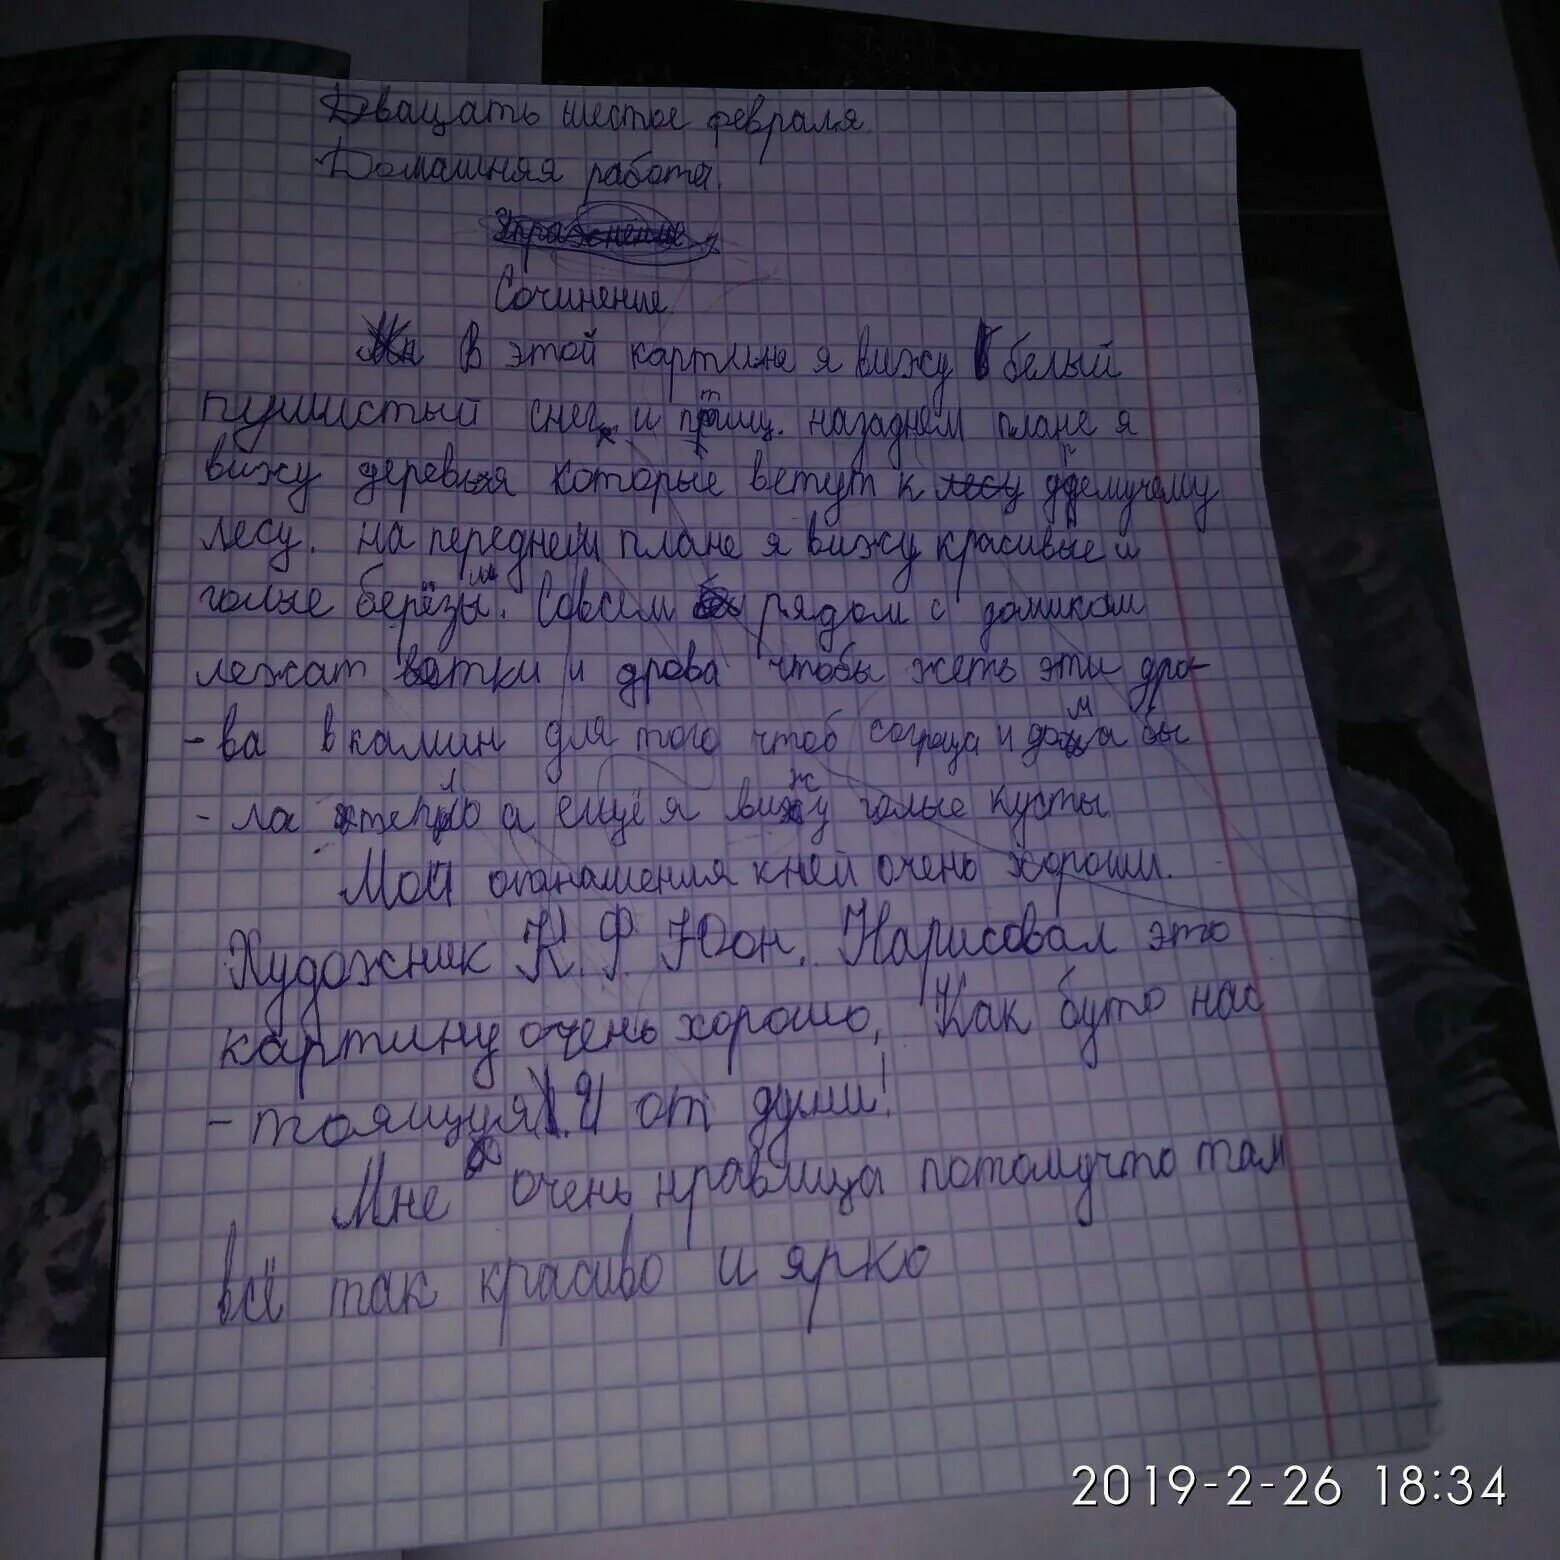 Двацать шестое февраля.
Домашняя работа.
Упражнение
Сочинение
В этой картине я вижу белый
пушистый снег и птиц. на заднем плане я
вижу деревья которые ветут к лесу дремучему
лесу. на переднем плане я вижу красивые и
голые берёзы. Совсем рядом с домиком
лежат ветки и дрова чтобы жеть эти дро-
-ва в камин для того чтоб согреца и дома бы
-ла тепло а ещё я вижу голые кусты
Мои отнашения к ней очень хороши.
Художник К. Ф. Юон. Нарисовал это
картину очень хорошо, Как буто нас
-тоящуя. И от души!
Мне очень нравица потомучто там
всё так красиво и ярко
2019-2-26 18:34